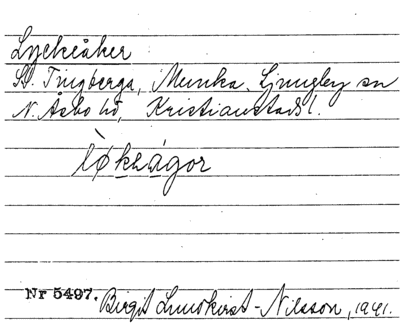 Lyckeåker
St. Tingberga, Munka Ljungby sn
N. Åsbo hd, Kristianstads l.
lø̀kkågor
Nr 5497. Birgit Lundkvist-Nilsson, 1941.